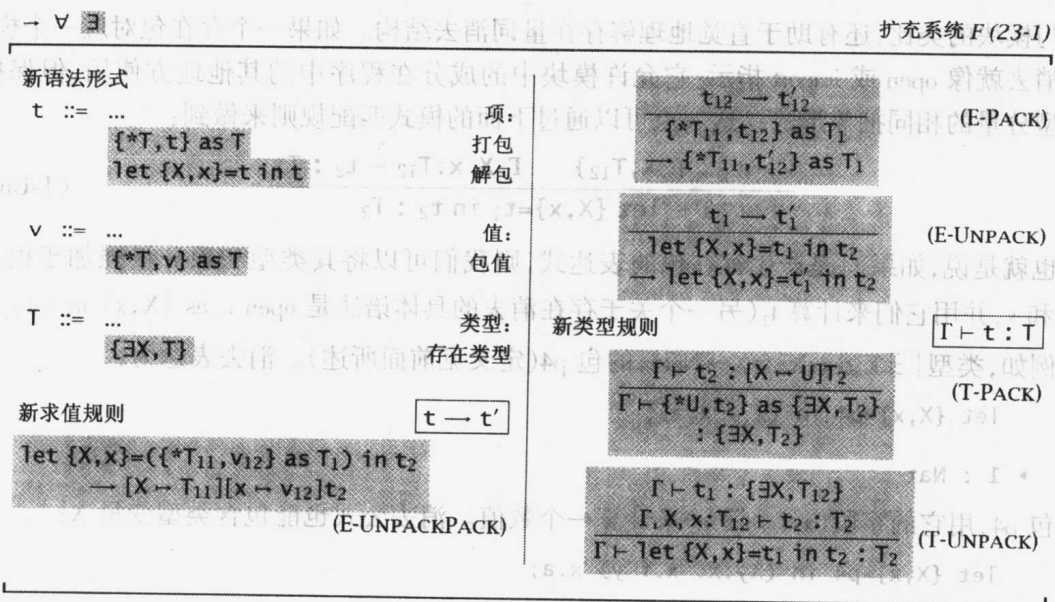 → ∀ ∃
扩充系统 F (23-1)
新语法形式
t ::= ... 项:
{*T,t} as T 打包
let {X,x}=t in t 解包
v ::= ... 值:
{*T,v} as T 包值
T ::= ... 类型:
{∃X,T} 存在类型
新求值规则 t → t′
let {X,x}=({*T₁₁,v₁₂} as T₁) in t₂
→ [X ↦ T₁₁][x ↦ v₁₂]t₂
(E-UNPACKPACK)
t₁₂ → t′₁₂
(E-PACK)
{*T₁₁,t₁₂} as T₁
→ {*T₁₁,t′₁₂} as T₁
t₁ → t′₁
(E-UNPACK)
let {X,x}=t₁ in t₂
→ let {X,x}=t′₁ in t₂
新类型规则 Γ ⊢ t : T
Γ ⊢ t₂ : [X ↦ U]T₂
(T-PACK)
Γ ⊢ {*U,t₂} as {∃X,T₂}
: {∃X,T₂}
Γ ⊢ t₁ : {∃X,T₁₂}
Γ, X, x:T₁₂ ⊢ t₂ : T₂
Γ ⊢ let {X,x}=t₁ in t₂ : T₂
(T-UNPACK)